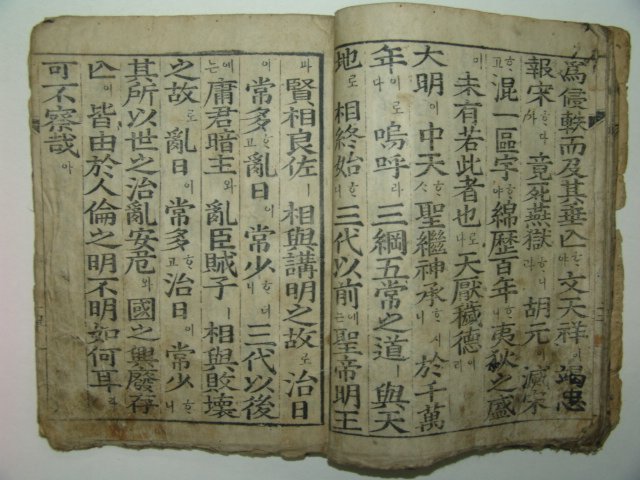 爲侵軼而及其垂亾ᄒᆞ야 文天祥이 竭忠
報宋ᄒᆞ다가 竟死燕獄ᄒᆞ니라 胡元이 滅宋
ᄒᆞ고 混一區宇ᄒᆞ야 綿歷百年ᄒᆞ니 夷狄之盛
이 未有若此者也로다 天厭穢德이라
大明이 中天ᄒᆞ샤 聖繼神承ᄒᆞ시니 於千萬
年이로다 嗚呼라 三綱五常之道ㅣ 與天
地로 相終始ᄒᆞ니 三代以前에는 聖帝明王
과 賢相良佐ㅣ 相與講明之故로 治日
이 常多ᄒᆞ고 亂日이 常少ᄒᆞ더니 三代以後
에는 庸君暗主와 亂臣賊子ㅣ 相與敗壞
之故로 亂日이 常多ᄒᆞ고 治日이 常少ᄒᆞ니
其所以世之治亂安危와 國之興廢存
亾ㅣ 皆由於人倫之明不明如何耳라
可不察哉아